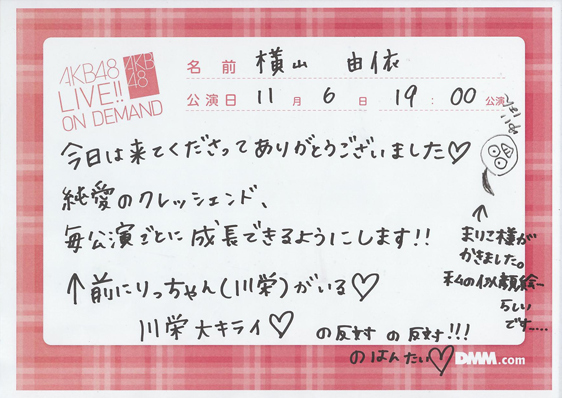 AKB48
LIVE!!
ON DEMAND
AKB
48
名前 横山 由依
公演日 11月6日 19:00公演
今日は来てくださってありがとうございました♡
純愛のクレッシェンド、
毎公演ごとに成長できるようにします!!
↑前にりっちゃん(川栄)がいる♡
川栄大キライ♡ の反対 の反対!!!
のはんたい♡
↑
まりこ様が
かきました。
私の似顔絵…
らしい
です……
DMM.com